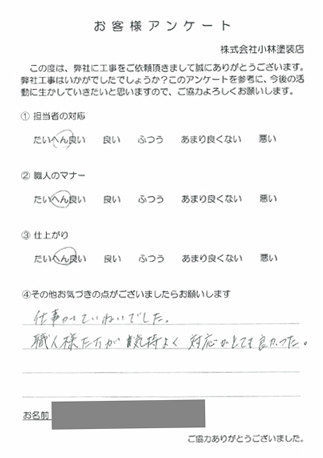 お客様アンケート
株式会社小林塗装店
この度は、弊社に工事をご依頼頂きまして誠にありがとうございます。
弊社工事はいかがでしたでしょうか？このアンケートを参考に、今後の活
動に生かしていきたいと思いますので、ご協力よろしくお願いします。
① 担当者の対応
たいへん良い 良い ふつう あまり良くない 悪い
② 職人のマナー
たいへん良い 良い ふつう あまり良くない 悪い
③ 仕上がり
たいへん良い 良い ふつう あまり良くない 悪い
④その他お気づきの点がございましたらお願いします
仕事がていねいでした。
職人様たちが気持よく対応がとても良かった。
お名前
ご協力ありがとうございました。